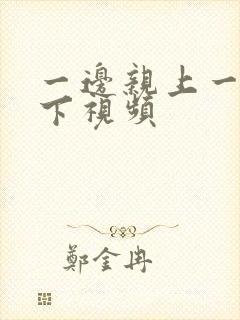 一邊親上一
下視頻
鄭金冉